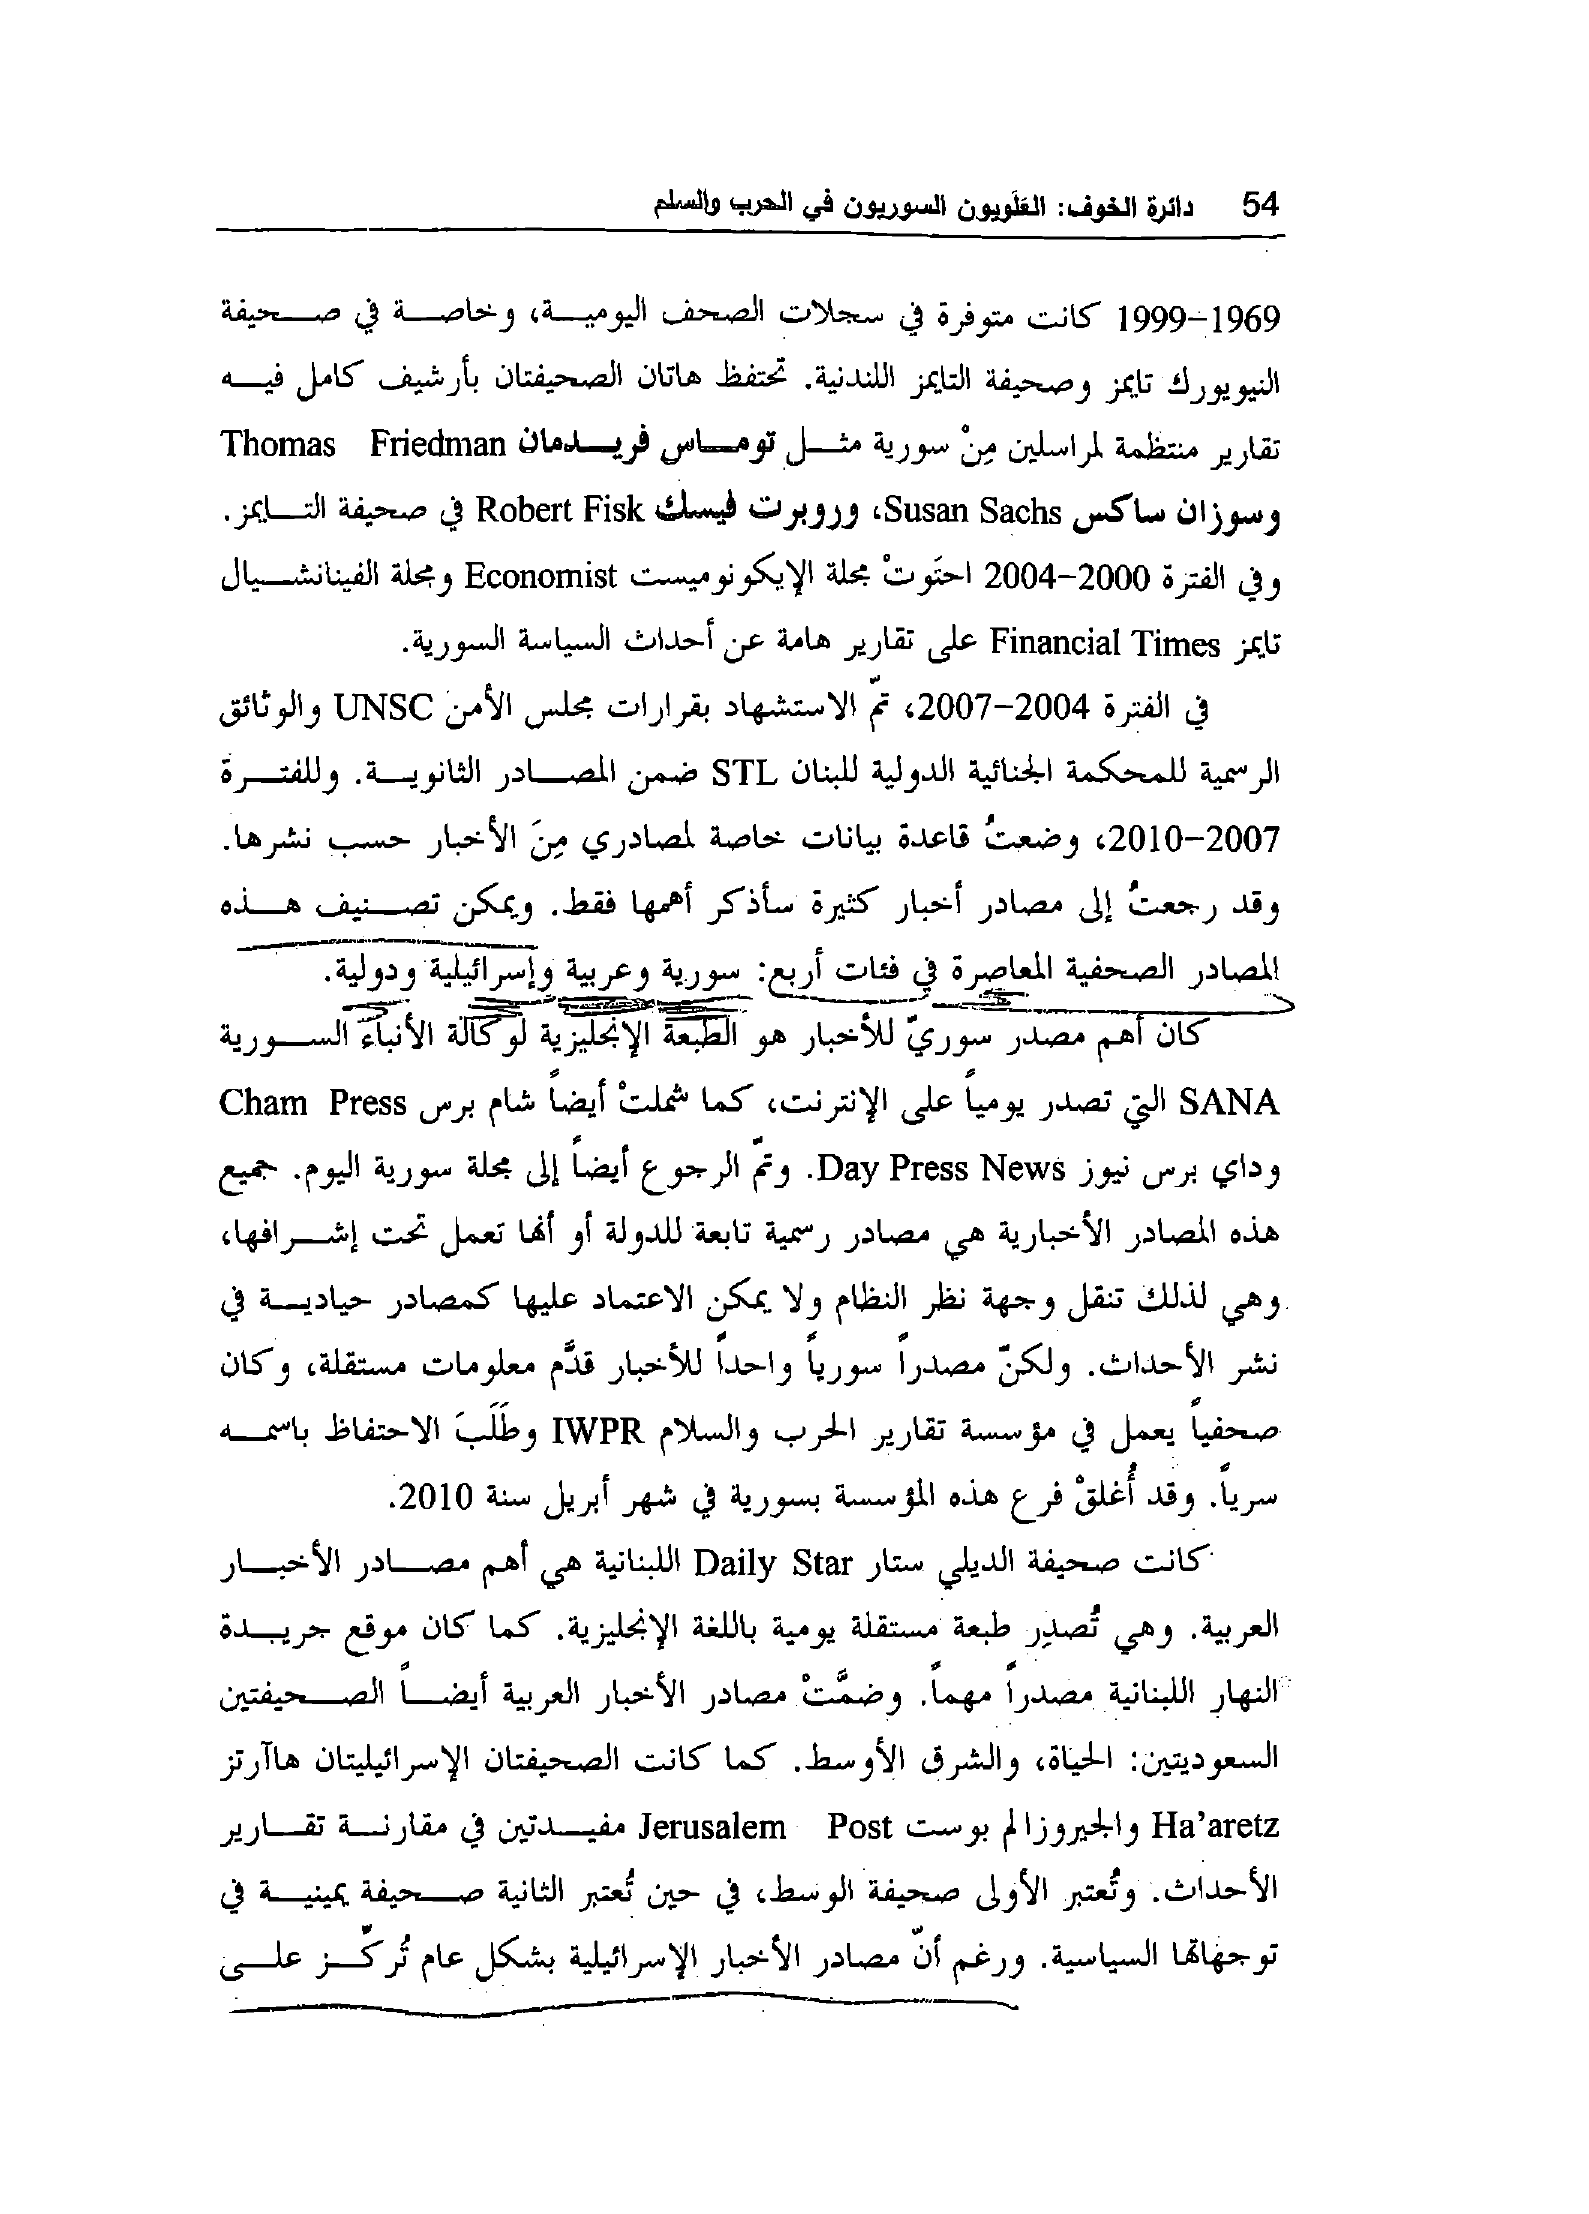 54 دائرة الخوف: العَلَويون السوريون في الحرب والسلم
1969-1999 كانت متوفرة في سجلات الصحف اليومية، وخاصة في صحيفة
النيويورك تايمز وصحيفة التايمز اللندنية. تحتفظ هاتان الصحيفتان بأرشيف كامل فيه
تقارير منتظمة لمراسلين مِنْ سورية مثل توماس فريدمان Thomas Friedman
وسوزان ساكس Susan Sachs، وروبرت فيسك Robert Fisk في صحيفة التايمز.
وفي الفترة 2000-2004 احتَوتْ مجلة الإيكونوميست Economist ومجلة الفينانشيال
تايمز Financial Times على تقارير هامة عن أحداث السياسة السورية.
في الفترة 2004-2007، تمّ الاستشهاد بقرارات مجلس الأمن UNSC والوثائق
الرسمية للمحكمة الجنائية الدولية للبنان STL ضمن المصادر الثانوية. وللفترة
2007-2010، وضعتُ قاعدة بيانات خاصة لمصادري مِنَ الأخبار حسب نشرها.
وقد رجعتُ إلى مصادر أخبار كثيرة سأذكر أهمها فقط. ويمكن تصنيف هذه
المصادر الصحفية المعاصرة في فئات أربع: سورية وعربية وإسرائيلية ودولية.
كان أهم مصدر سوريّ للأخبار هو الطبعة الإنجليزية لوكالة الأنباء السورية
SANA التي تصدر يومياً على الإنترنت، كما شملتْ أيضاً شام برس Cham Press
وداي برس نيوز Day Press News. وتمّ الرجوع أيضاً إلى مجلة سورية اليوم. جميع
هذه المصادر الأخبارية هي مصادر رسمية تابعة للدولة أو أنها تعمل تحت إشرافها،
وهي لذلك تنقل وجهة نظر النظام ولا يمكن الاعتماد عليها كمصادر حيادية في
نشر الأحداث. ولكنّ مصدراً سورياً واحداً للأخبار قدَّم معلومات مستقلة، وكان
صحفياً يعمل في مؤسسة تقارير الحرب والسلام IWPR وطَلَبَ الاحتفاظ باسمه
سرياً. وقد أُغلقْ فرع هذه المؤسسة بسورية في شهر أبريل سنة 2010.
كانت صحيفة الديلي ستار Daily Star اللبنانية هي أهم مصادر الأخبار
العربية. وهي تُصدِر طبعة مستقلة يومية باللغة الإنجليزية. كما كان موقع جريدة
النهار اللبنانية مصدراً مهماً. وضمَّتْ مصادر الأخبار العربية أيضاً الصحيفتين
السعوديتين: الحياة، والشرق الأوسط. كما كانت الصحيفتان الإسرائيليتان هاآرتز
Ha'aretz والجيروزالم بوست Jerusalem Post مفيدتين في مقارنة تقارير
الأحداث. وتُعتبر الأولى صحيفة الوسط، في حين تُعتبر الثانية صحيفة يمينية في
توجهاتها السياسية. ورغم أنّ مصادر الأخبار الإسرائيلية بشكل عام تُركّز على